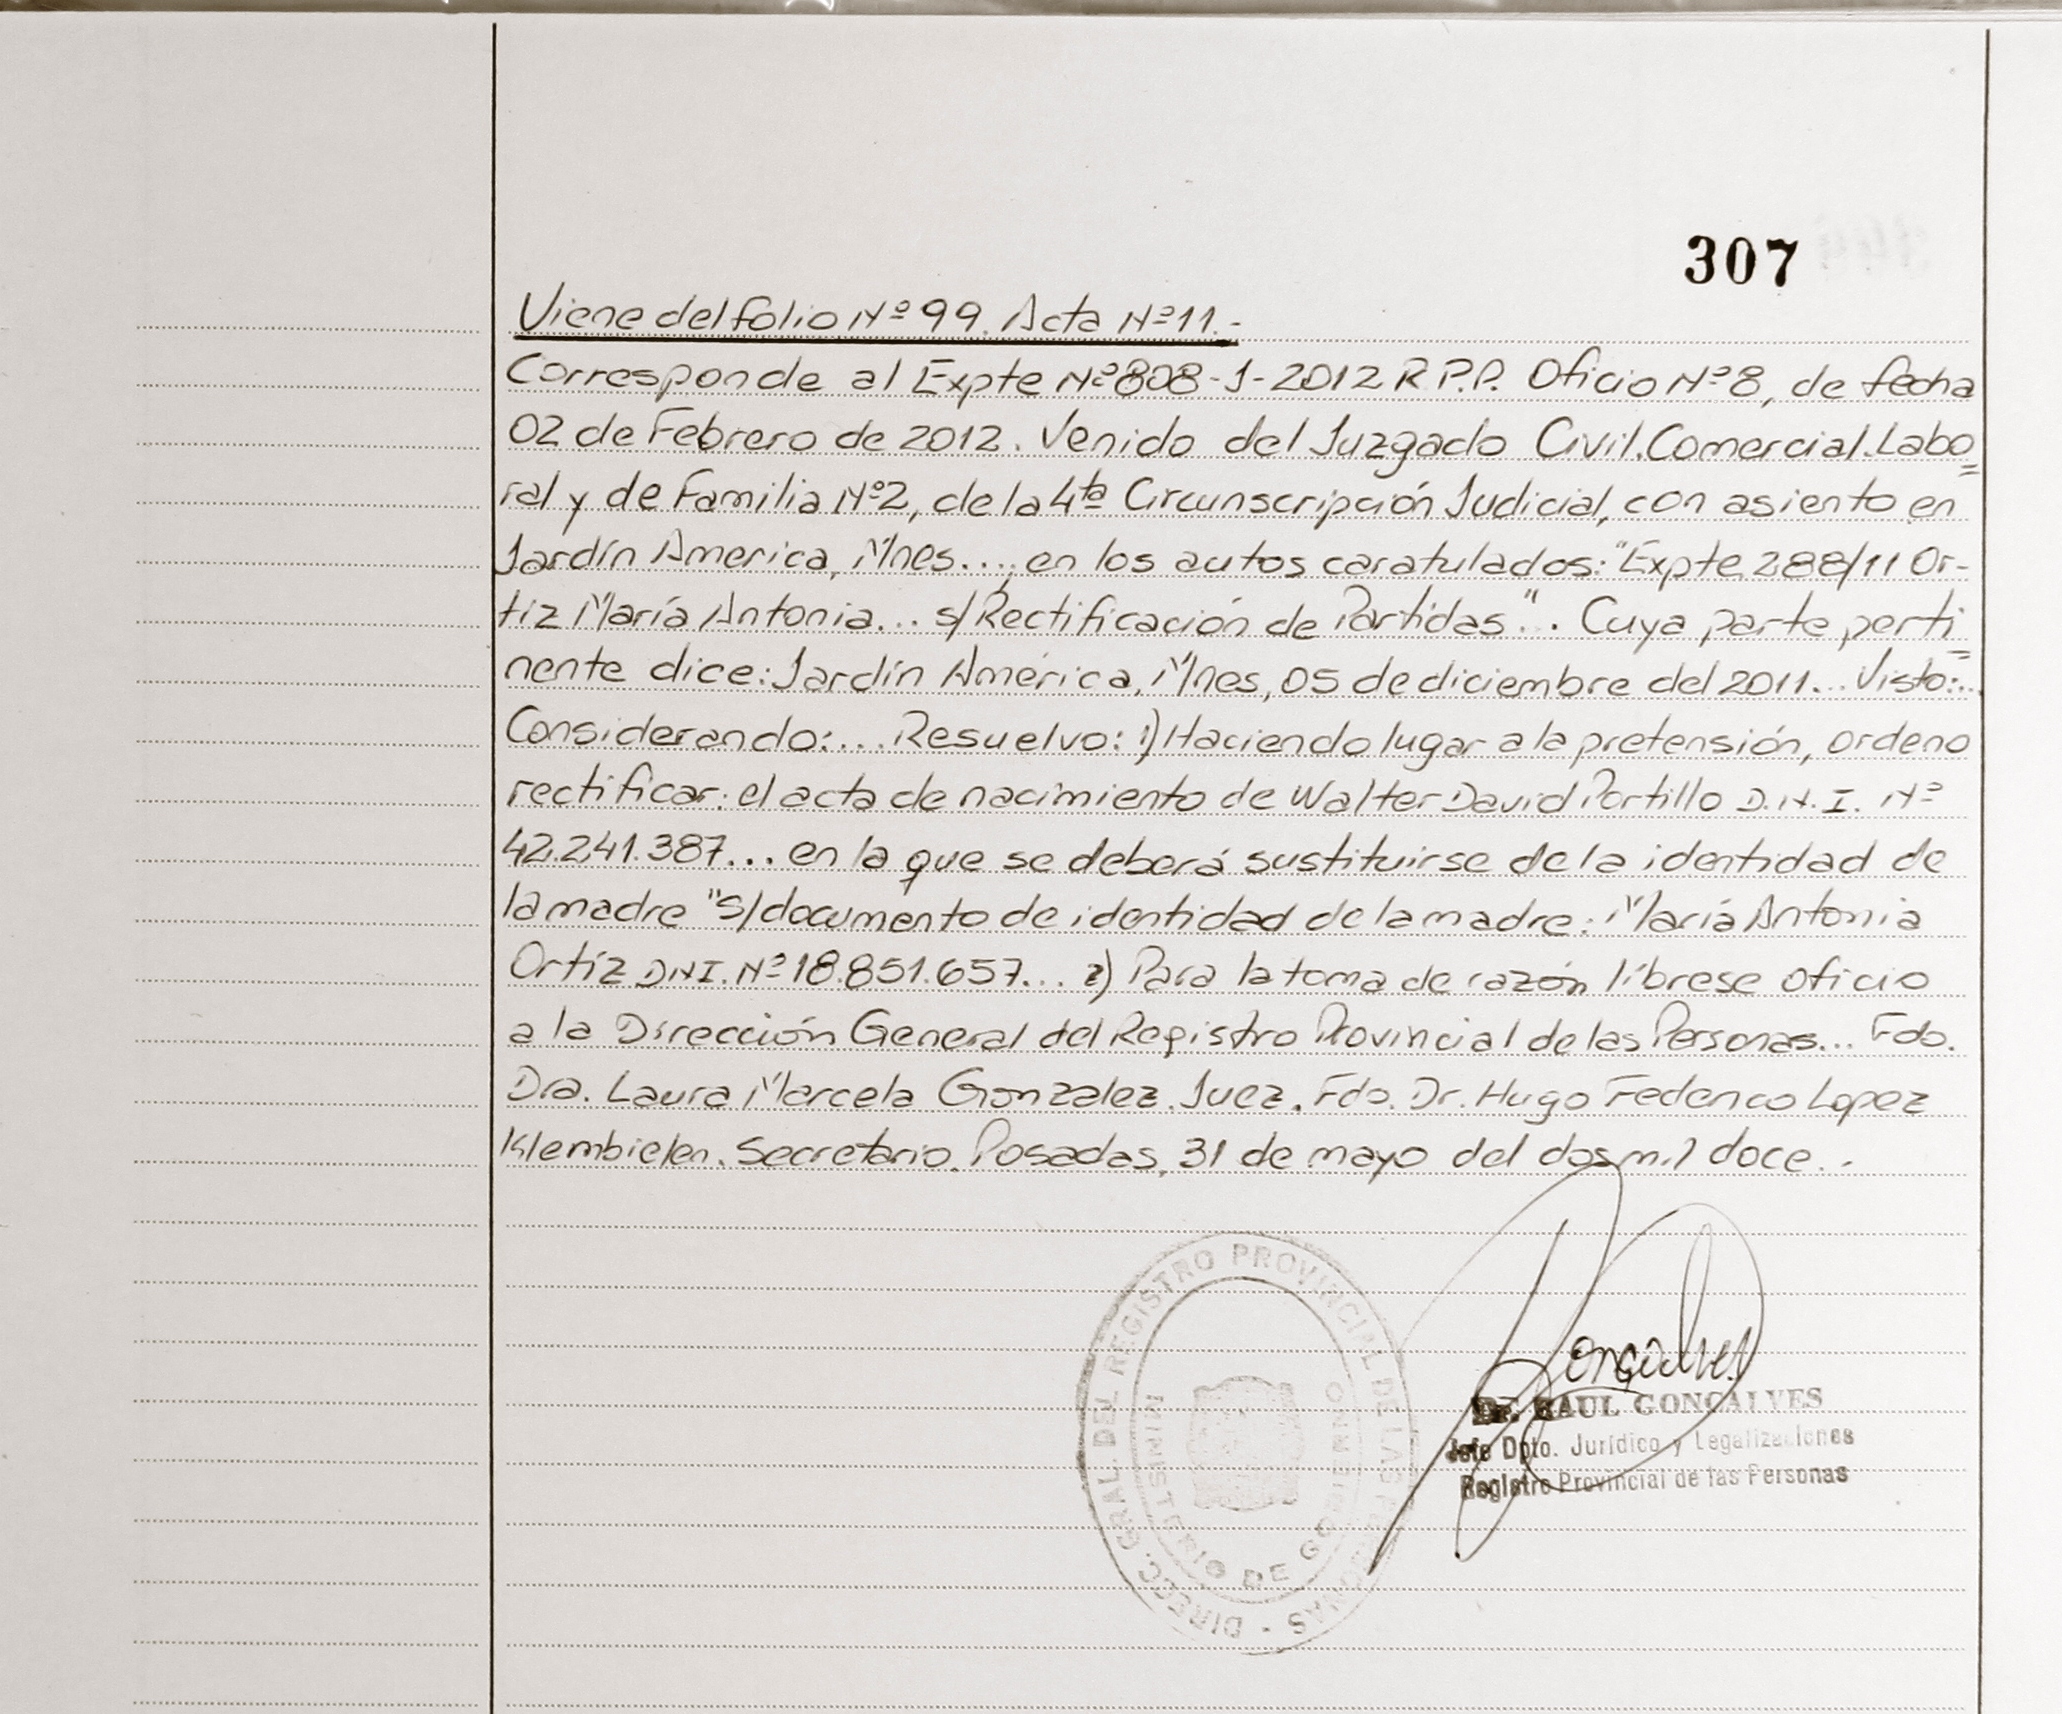 307
Viene del folio Nº 99. Acta Nº 11.-
Corresponde al Expte Nº 808-J-2012 R.P.P. Oficio Nº 8, de fecha
02 de Febrero de 2012. Venido del Juzgado Civil.Comercial.Labo=
ral y de Familia Nº2, de la 4ta Circunscripción Judicial, con asiento en
Jardín America, Mnes...., en los autos caratulados: "Expte 288/11 Or-
tiz María Antonia... s/Rectificación de Partidas". Cuya parte perti=
nente dice: Jardín América, Mnes, 05 de diciembre del 2011... Visto:...
Considerando:... Resuelvo: 1) Haciendo lugar a la pretensión, ordeno
rectificar: el acta de nacimiento de Walter David Portillo D.N.I. Nº
42.241.387... en la que se deberá sustituirse de la identidad de
la madre "s/documento de identidad de la madre: María Antonia
Ortíz DNI. Nº 18.851.657... 2) Para la toma de razón líbrese oficio
a la Dirección General del Registro Provincial de las Personas... Fdo.
Dra. Laura Marcela Gonzalez. Juez. Fdo. Dr. Hugo Federico Lopez
Klembielen. Secretario. Posadas, 31 de mayo del dos mil doce..
DIREC. GRAL. DEL REGISTRO PROVINCIAL DE LAS PERSONAS -
MINISTERIO DE GOBIERNO
Gonçalves
Dr. RAUL GONCALVES
Jefe Dpto. Jurídico y Legalizaciones
Registro Provincial de las Personas